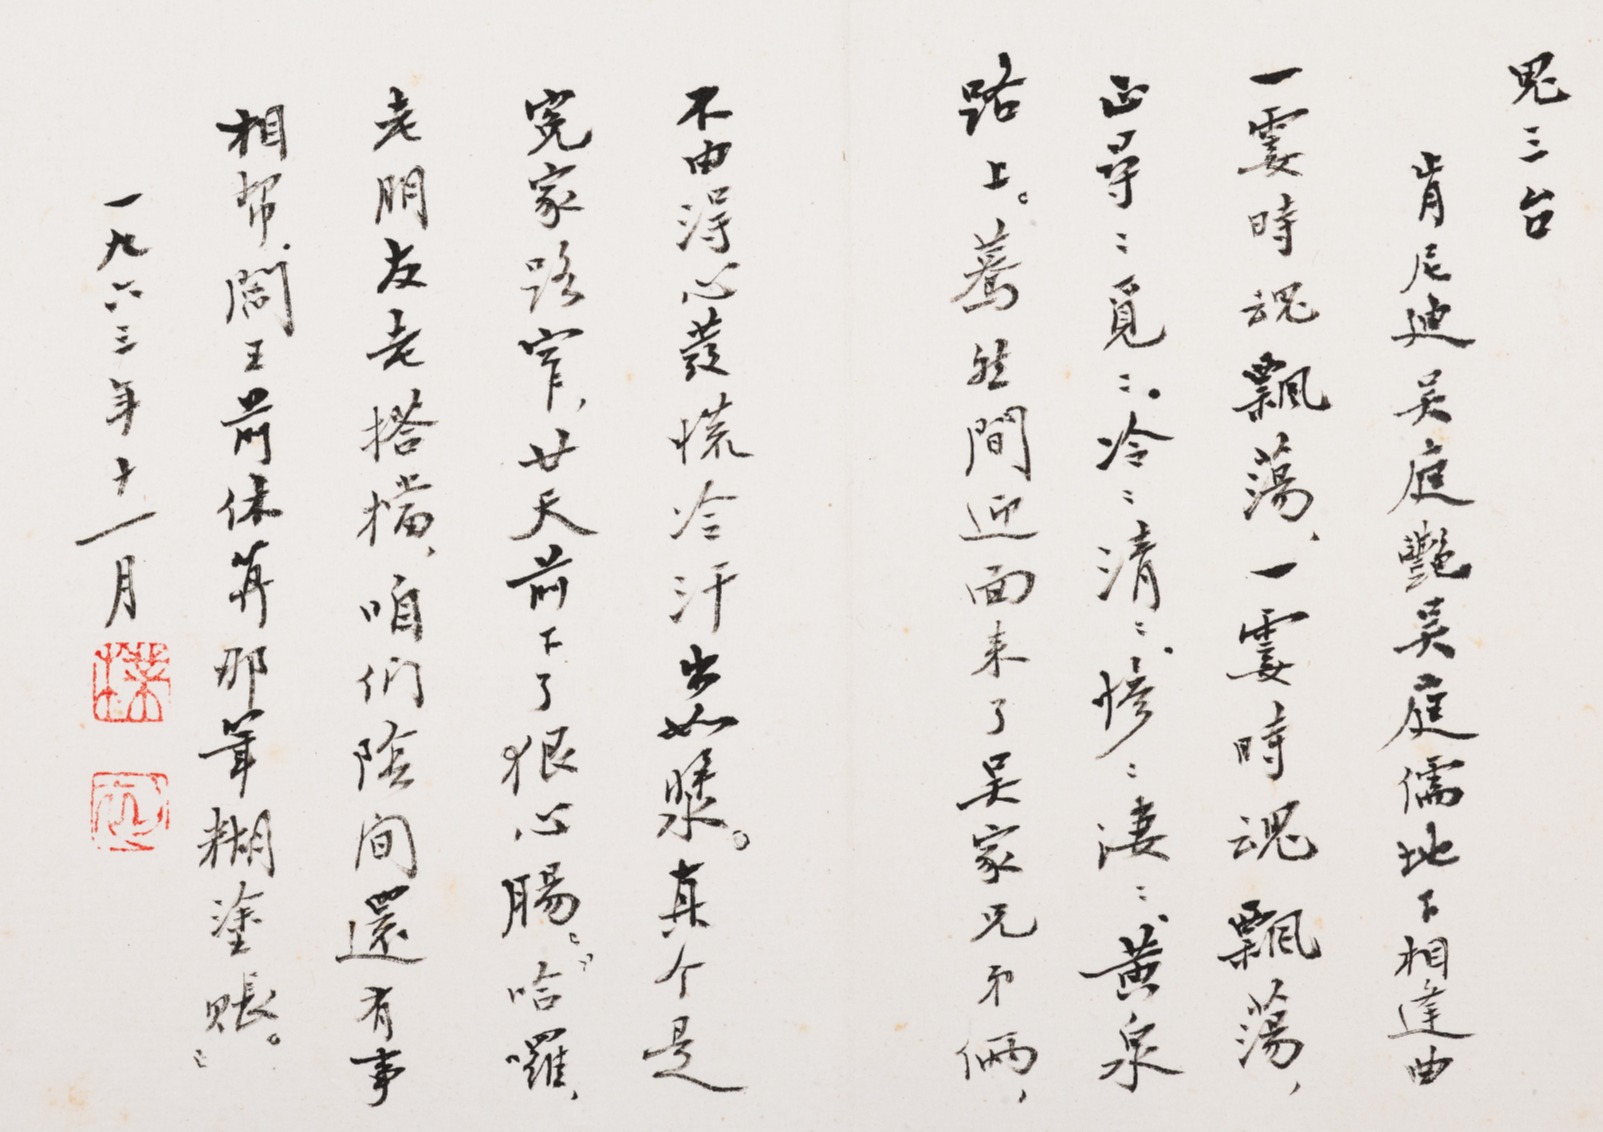 鬼三台
肯尼迪吴庭艷吴庭儒地下相逢曲
一霎時魂飄蕩、一霎時魂飄蕩，
正尋〻覓〻。冷〻清〻、慘〻淒〻、黄泉
路上。驀然間迎面来了吴家兄弟倆，
不由得心發慌冷汗出如漿。真个是
冤家路窄，廿天前下了狠心腸。”哈囉，
老朋友老搭檔，咱們陰间還有事
相帮，閻王前休算那筆糊塗賬。”
一九六三年十一月
樸
初